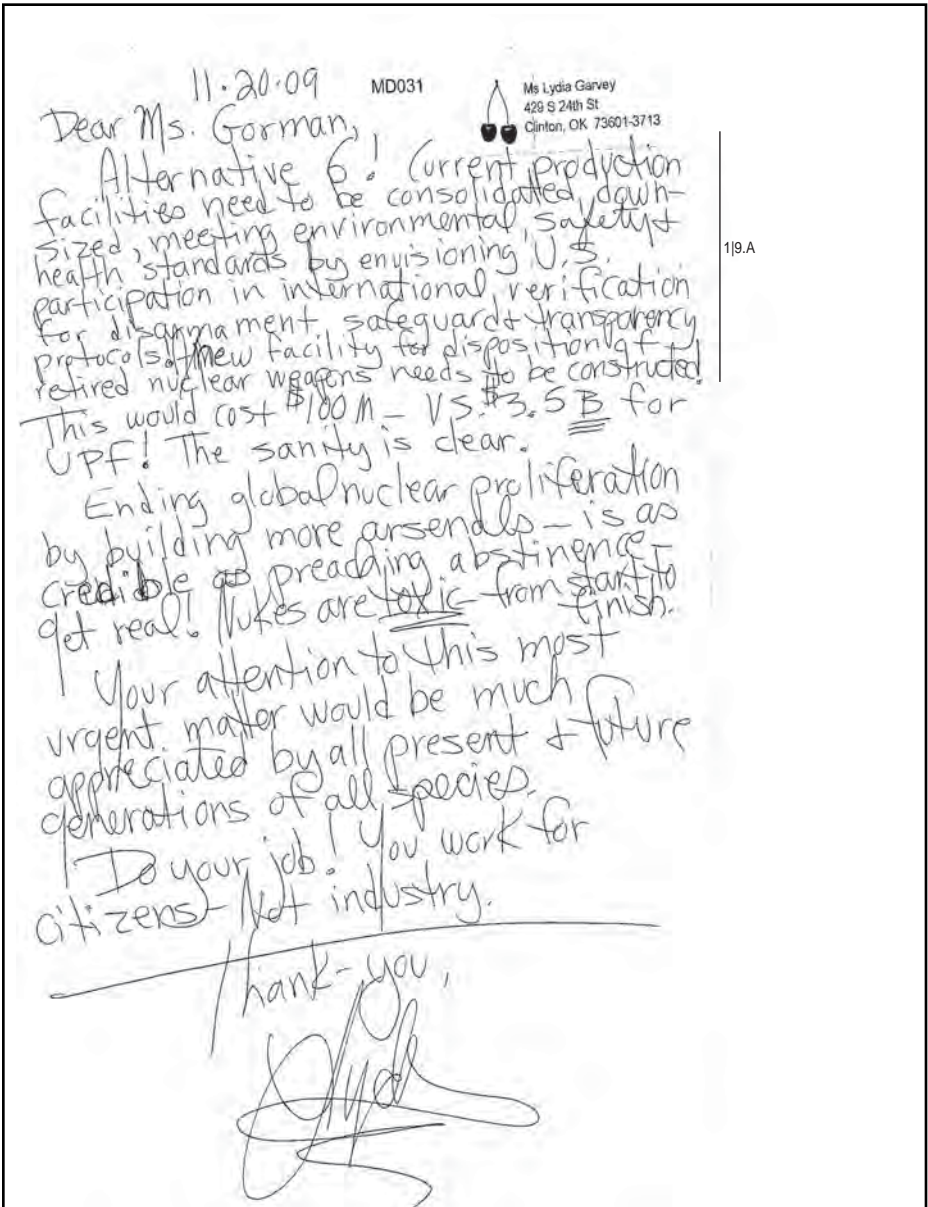 11·20·09
MD031
Ms Lydia Garvey
429 S 24th St
Clinton, OK 73601-3713
Dear Ms. Gorman,
Alternative 6! Current production
facilities need to be consolidated, down-
sized, meeting environmental, safety &
health standards by envisioning U.S.
participation in international verification
for disarmament, safeguard & transparency
protocols. A new facility for disposition of
retired nuclear weapons needs to be constructed.
1|9.A
This would cost $100M - VS. $3.5 B for
UPF! The sanity is clear.
Ending global nuclear proliferation
by building more arsenals - is as
credible as preaching abstinence -
get real! Nukes are toxic - from start to
finish.
Your attention to this most
urgent matter would be much
appreciated by all present & future
generations of all species.
Do your job! You work for
citizens - Not industry.
Thank-you,
Lydia